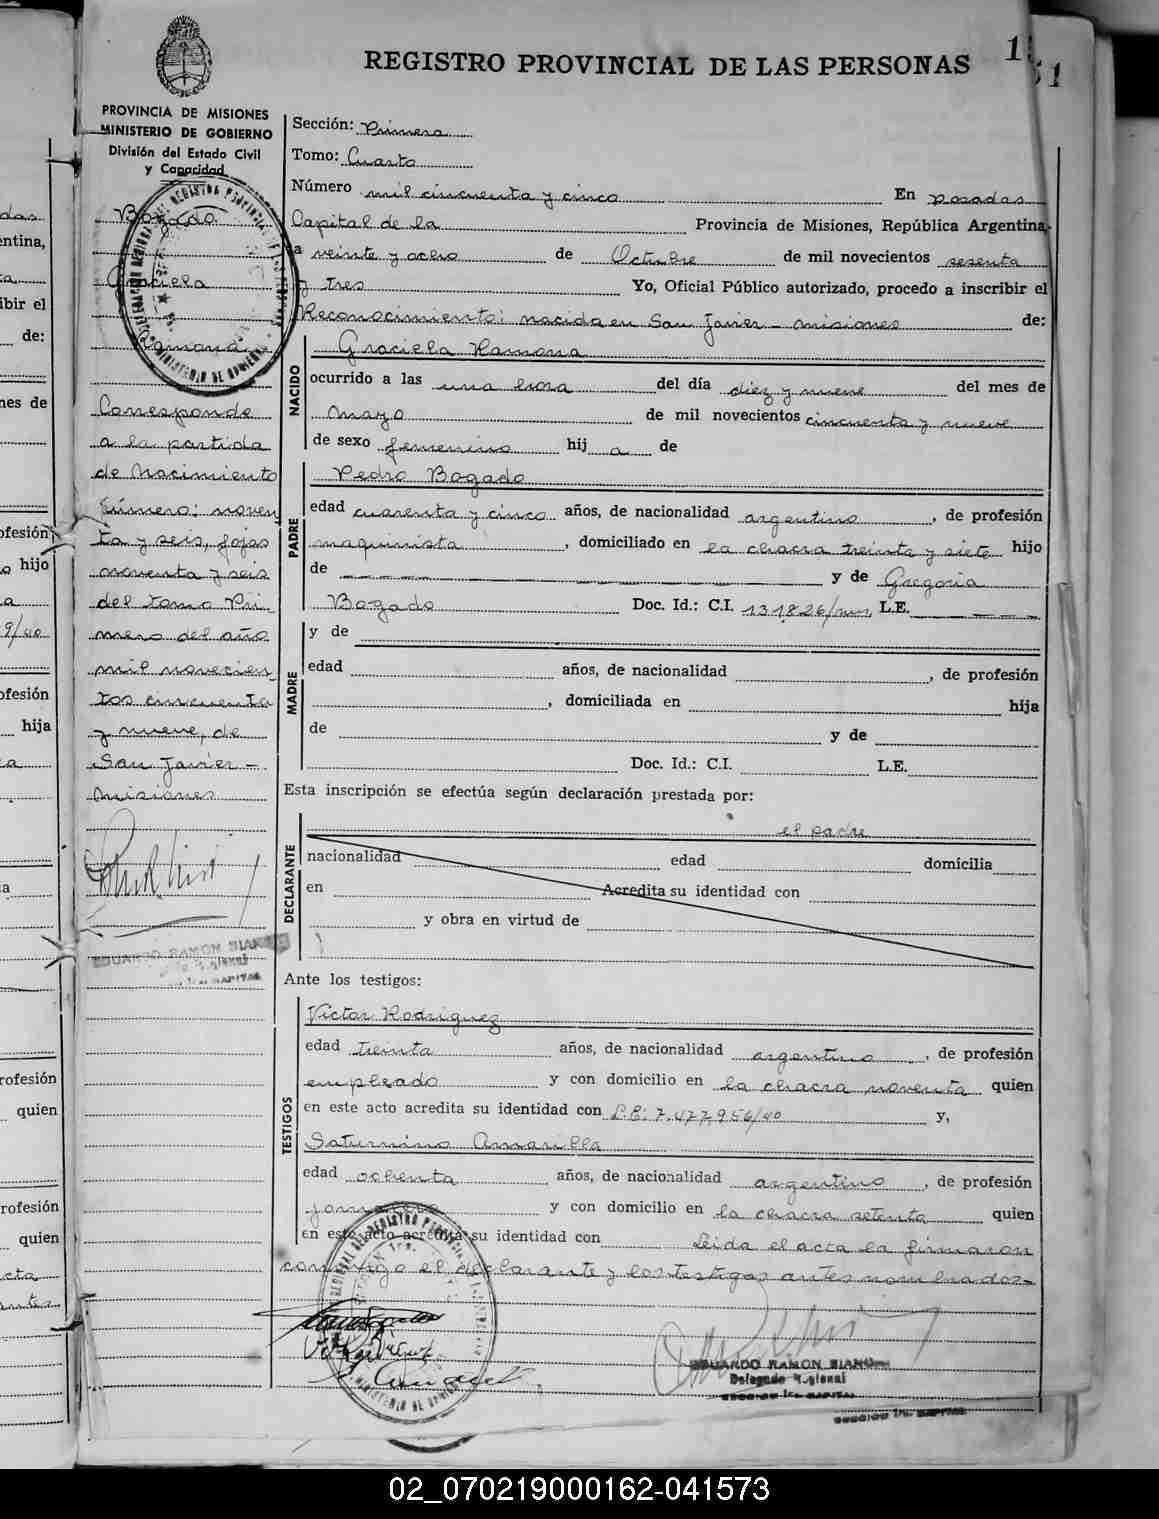 REGISTRO PROVINCIAL DE LAS PERSONAS
PROVINCIA DE MISIONES
MINISTERIO DE GOBIERNO
División del Estado Civil
y Capacidad
Bogado
Graciela
Ramona
Corresponde
a la partida
de Nacimiento
Número: noven
ta y seis, fojas
noventa y seis
del tomo Pri
mero del año
mil novecien
tos cincuenta
y nueve, de
San Javier -
Misiones
EDUARDO RAMON
Sección: Primera
Tomo: Cuarto
Número mil cincuenta y cinco En Posadas
Capital de la Provincia de Misiones, República Argentina,
a veinte y ocho de Octubre de mil novecientos sesenta
y tres Yo, Oficial Público autorizado, procedo a inscribir el
Reconocimiento: nacida en San Javier - misiones de:
NACIDO
Graciela Ramona
ocurrido a las una hora del día diez y nueve del mes de
Mayo de mil novecientos cincuenta y nueve
de sexo femenino hij a de
PADRE
Pedro Bogado
edad cuarenta y cinco años, de nacionalidad argentino, de profesión
maquinista, domiciliado en la chacra treinta y siete hijo
de — — — — y de Gregoria
Bogado Doc. Id.: C.I. 131826/ L.E. — — —
MADRE
y de
edad años, de nacionalidad , de profesión
, domiciliada en hija
de y de
Doc. Id.: C.I. L.E.
Esta inscripción se efectúa según declaración prestada por:
DECLARANTE
el padre
nacionalidad edad domicilia
en Acredita su identidad con
y obra en virtud de
Ante los testigos:
TESTIGOS
Victor Rodriguez
edad treinta años, de nacionalidad argentino, de profesión
empleado y con domicilio en la chacra noventa quien
en este acto acredita su identidad con L.E: 7.477.956/40 y,
Saturnino Amarilla
edad ochenta años, de nacionalidad argentino, de profesión
y con domicilio en la chacra setenta quien
en este acto acredita su identidad con Leida el acta la firmaron
conmigo el declarante y los testigos antes nombrados-
EDUARDO RAMON
Delegado Regional
02_070219000162-041573